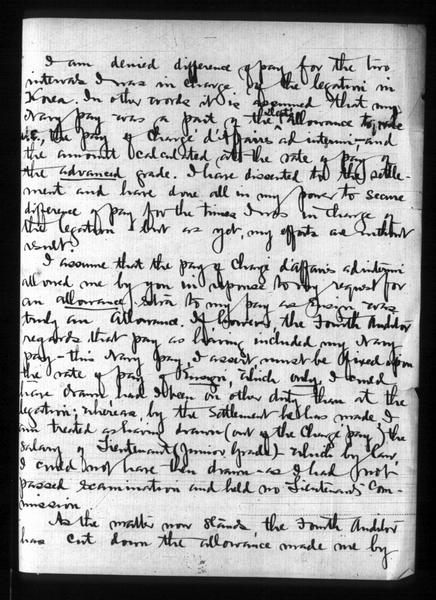 I am denied difference of pay for the two
intervals I was in charge of the legation in
Korea. In other words it is assumed that my
Navy pay was a part of the allowance to make
the pay of Chargé d'Affaires ad interim, and
the amount calculated at the rate of pay of
the advanced grade. I have dissented to the settle-
ment and have done all in my power to secure
difference of pay for the times I was in charge of
the legation but as yet, my efforts are without
result.
I assume that the pay of Chargé d'affaires ad interim
allowed me by you in response to my request for
an allowance extra to my pay as Ensign was
truly an Allowance. If however, the Fourth Auditor
regards that pay as having included my Navy
pay - this Navy pay, I assert must be fixed upon
the rate of pay of Ensign, which only, I could
have drawn had I been on other duty than at the
legation; whereas by the settlement he has made I
am treated as having drawn (out of the Chargé pay) the
salary of Lieutenant (Junior Grade) which by law,
I could not have then drawn - as I had not
passed examination and held no Lieutenant's Com-
mission.
As the matter now stands the Fourth Auditor
has cut down the allowance made me by